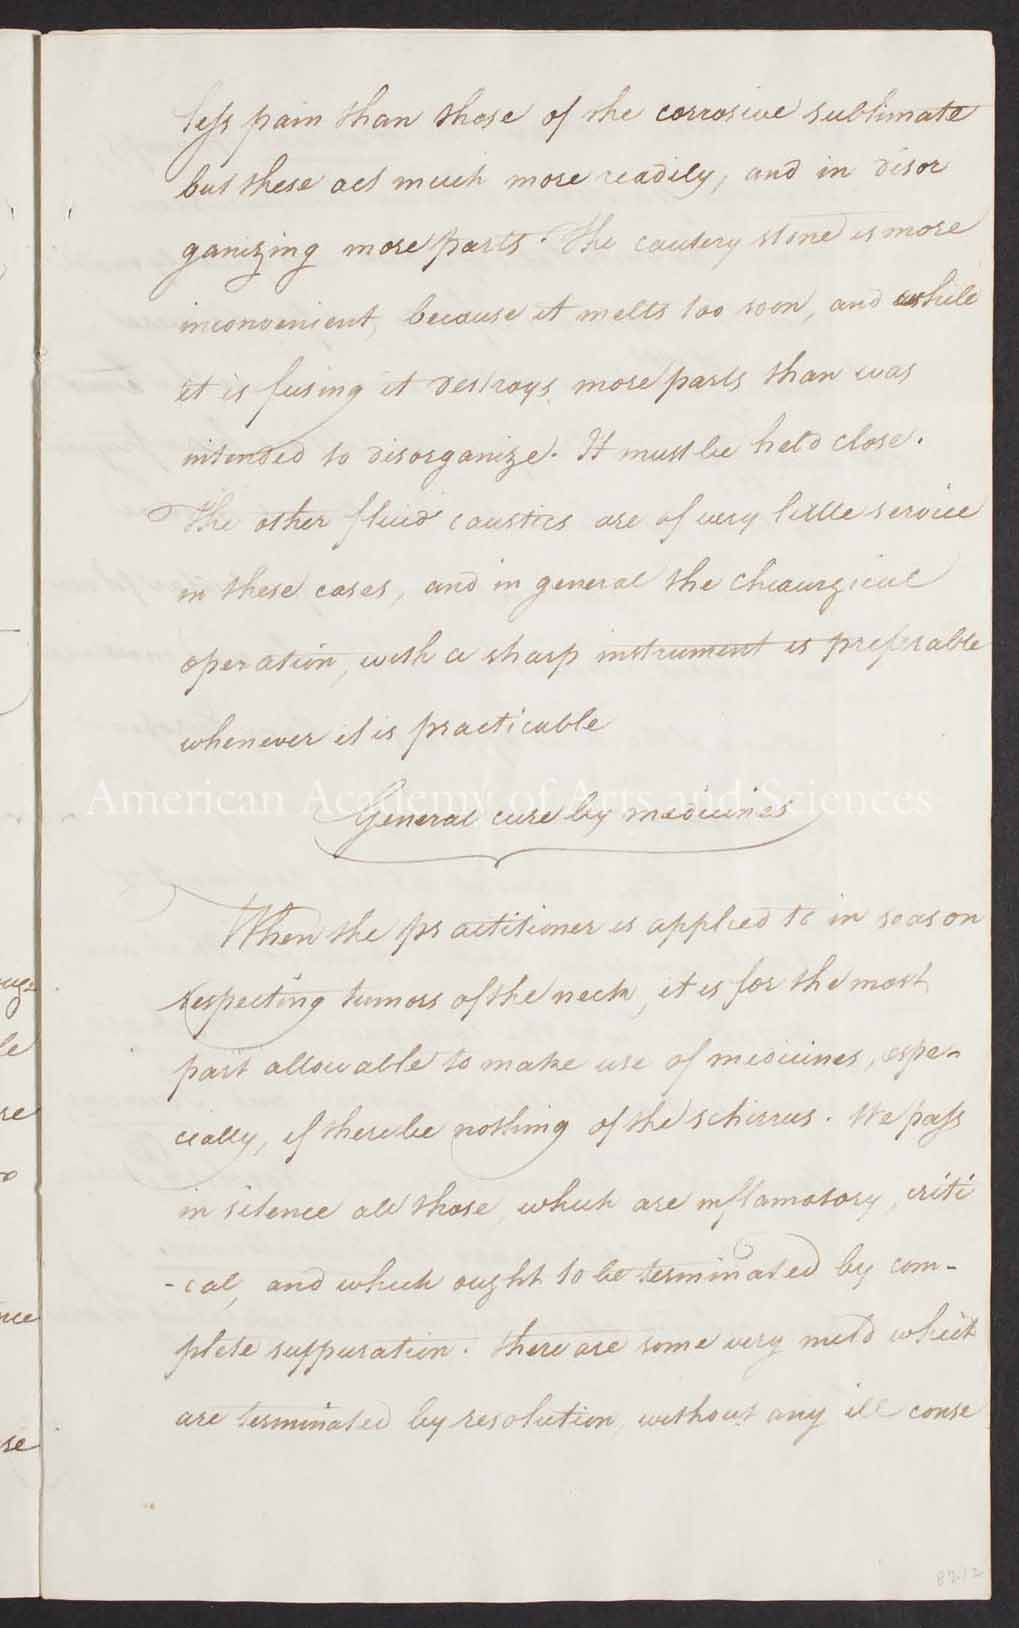 less pain than those of the corrosive sublimate
but these act much more readily, and in disor
ganizing more parts. The cautery stone is more
inconvenient, because it melts too soon, and while
it is fusing it destroys more parts than was
intended to disorganize. It must be held close.
The other fluid caustics are of very little service
in these cases, and in general the chirurgical
operation, with a sharp instrument is preferable
whenever it is practicable
American Academy of Arts and Sciences
General cure by medicines
When the practitioner is applied to in season
respecting tumors of the neck, it is for the most
part allowable to make use of medicines, espe-
cially, if there be nothing of the schirrus. We pass
in silence all those, which are inflamatory, criti
-cal, and which ought to be terminated by com-
plete suppuration. There are some very mild which
are terminated by resolution, without any ill conse
8212